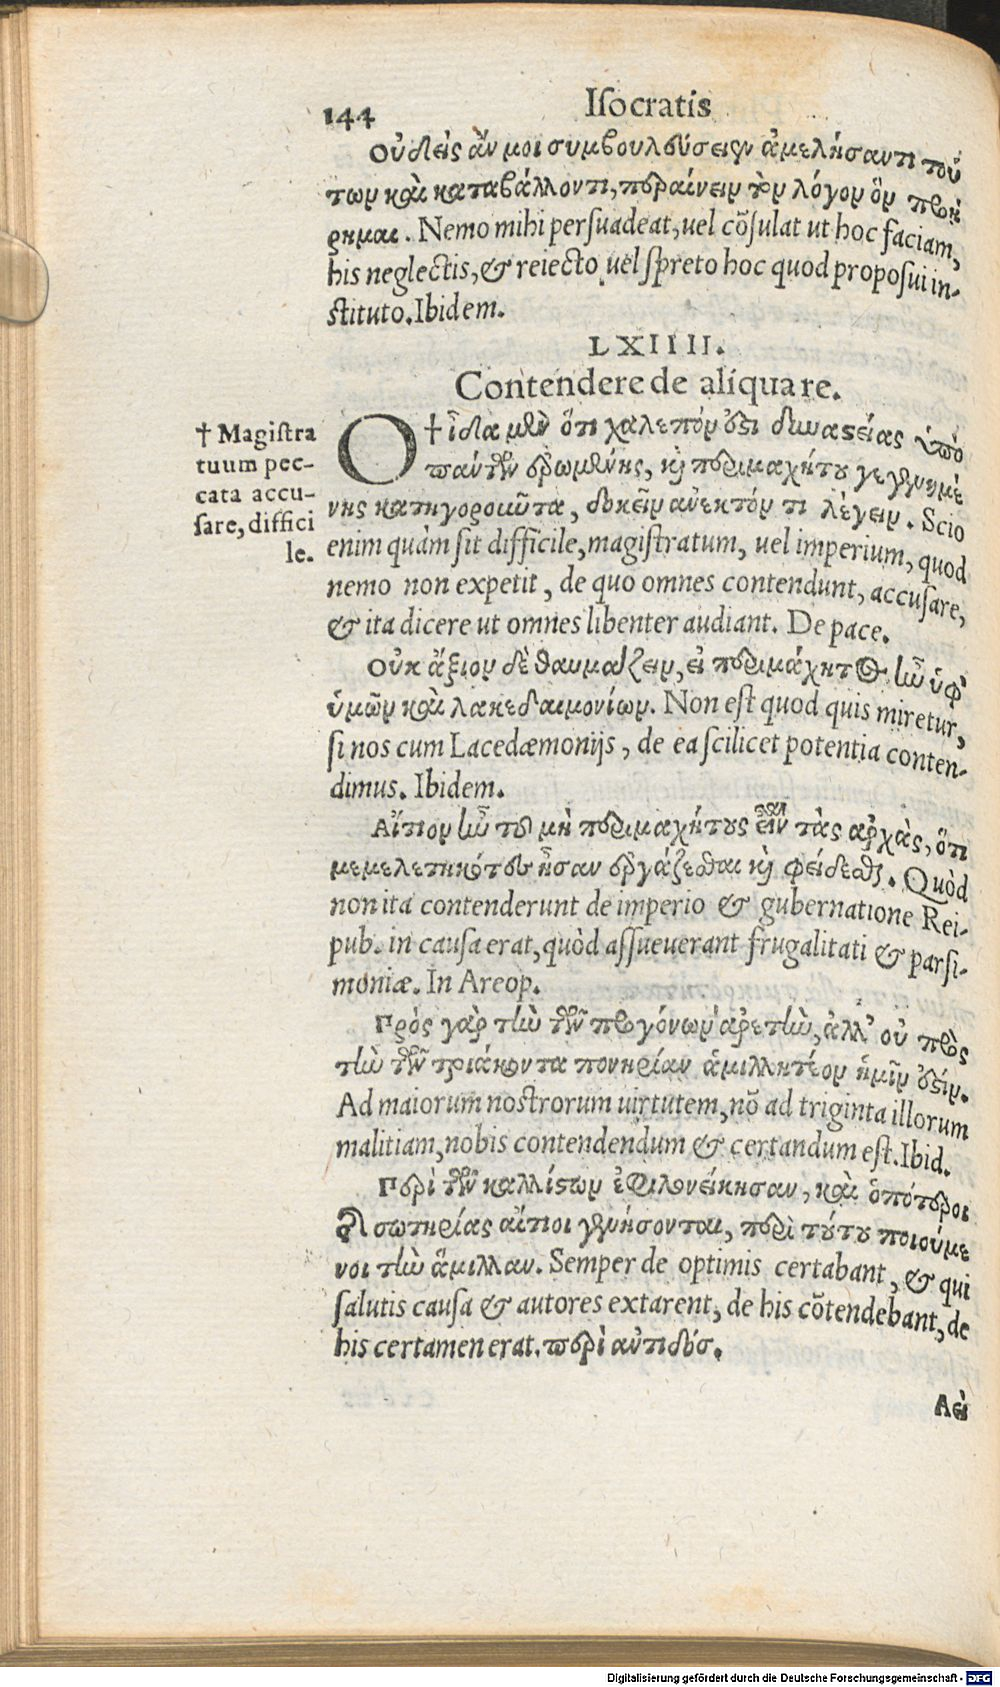 144 Iſocratis
Οὐδεὶς ἄν μοι συμβουλεύσειεν ἀμελήσαντι τού
των καὶ καταβάλλοντι, περαίνειν τὸν λόγον ὃν προῄ
ρημαι. Nemo mihi perſuadeat, uel cõſulat ut hoc faciam,
his neglectis, & reiecto uel ſpreto hoc quod propoſui in-
ſtituto. Ibidem.
LXIIII.
Contendere de aliqua re.
† Magiſtra
tuum pec-
cata accu-
ſare, diffici
le.
Ο† ἶδα μὲν ὅτι χαλεπόν ὅστι δυναστείας ὑπὸ
πάντων ἐρωμένης, καὶ περιμαχήτου γεγενημέ
νης κατηγοροῦντα, δοκεῖν ἀνεκτόν τι λέγειν. Scio
enim quàm ſit difficile, magiſtratum, uel imperium, quod
nemo non expetit, de quo omnes contendunt, accuſare,
& ita dicere ut omnes libenter audiant. De pace.
Οὐκ ἄξιον δὲ θαυμάζειν, εἰ περιμάχητος ἦν ὑφ'
ὑμῶν καὶ λακεδαιμονίων. Non eſt quod quis miretur,
ſi nos cum Lacedæmonijs, de ea ſcilicet potentia conten-
dimus. Ibidem.
Αἴτιον ἦν τοῦ μὴ περιμαχήτους εἶναι τὰς ἀρχὰς, ὅτι
μεμελετηκότες ἦσαν ἐργάζεσθαι καὶ φείδεσθαι. Quòd
non ita contenderunt de imperio & gubernatione Rei-
pub. in cauſa erat, quòd aſſueuerant frugalitati & parſi-
moniæ. In Areop.
Πρὸς γὰρ τὴν τῶν προγόνων ἀρετὴν, ἀλλ' οὐ πρὸς
τὴν τῶν τριάκοντα πονηρίαν ἁμιλλητέον ἡμῖν ἐστίν.
Ad maiorum noſtrorum uirtutem, nõ ad triginta illorum
malitiam, nobis contendendum & certandum eſt. Ibid.
Περὶ τῶν καλλίστων ἐφιλονείκησαν, καὶ ὁπότεροι
τῆς σωτηρίας αἴτιοι γενήσονται, περὶ τούτου ποιούμε
νοι τὴν ἅμιλλαν. Semper de optimis certabant, & qui
ſalutis cauſa & autores extarent, de his cõtendebant, de
his certamen erat. περὶ ἀντιδόσ.
Αεὶ
Digitalisierung gefördert durch die Deutsche Forschungsgemeinschaft - DFG